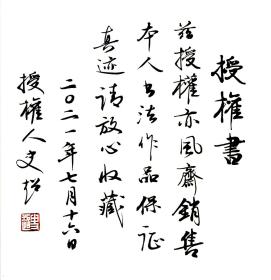 授權書
茲授權亦風齋銷售
本人书法作品保证
真迹請放心收藏
二〇二一年七月十六日
授權人史